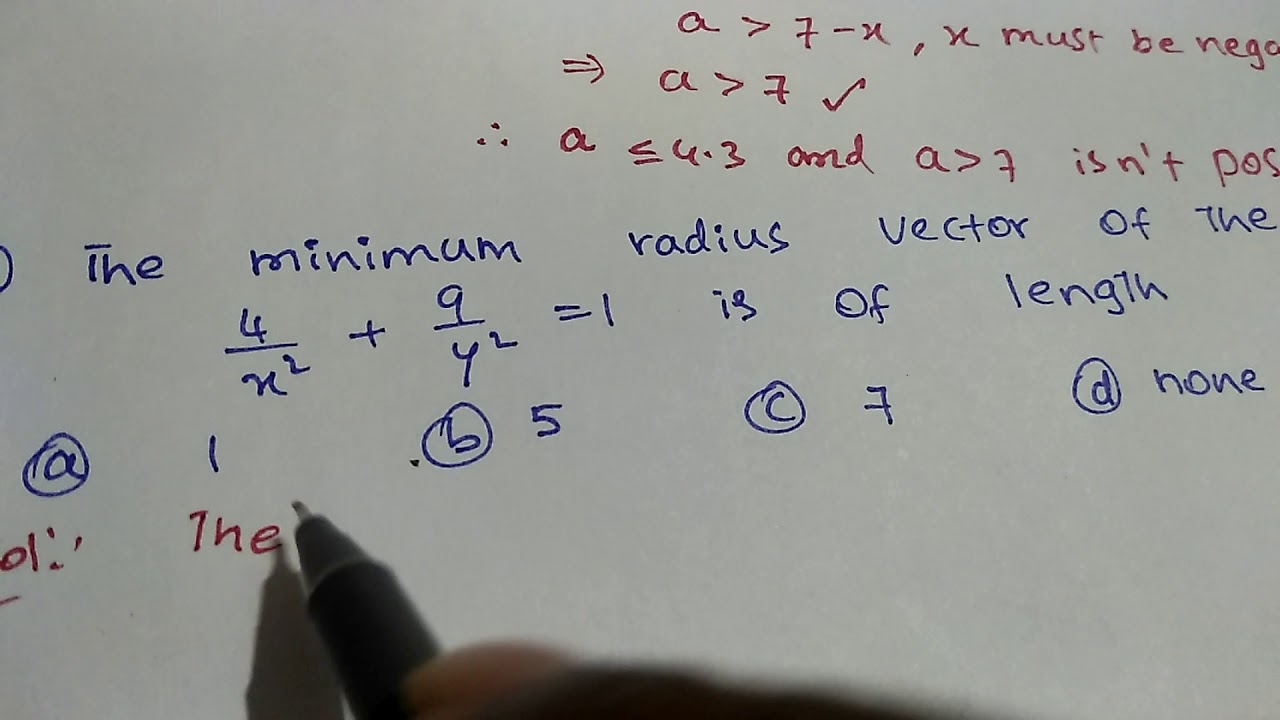 a > 7 - x , x must be nega
⇒ a > 7 ✓
∴ a ≤ 4.3 and a > 7 isn't pos
) The minimum radius vector of the
4/x² + 9/y² = 1 is of length
ⓐ 1 ⓑ 5 ⓒ 7 ⓓ none
ol: The